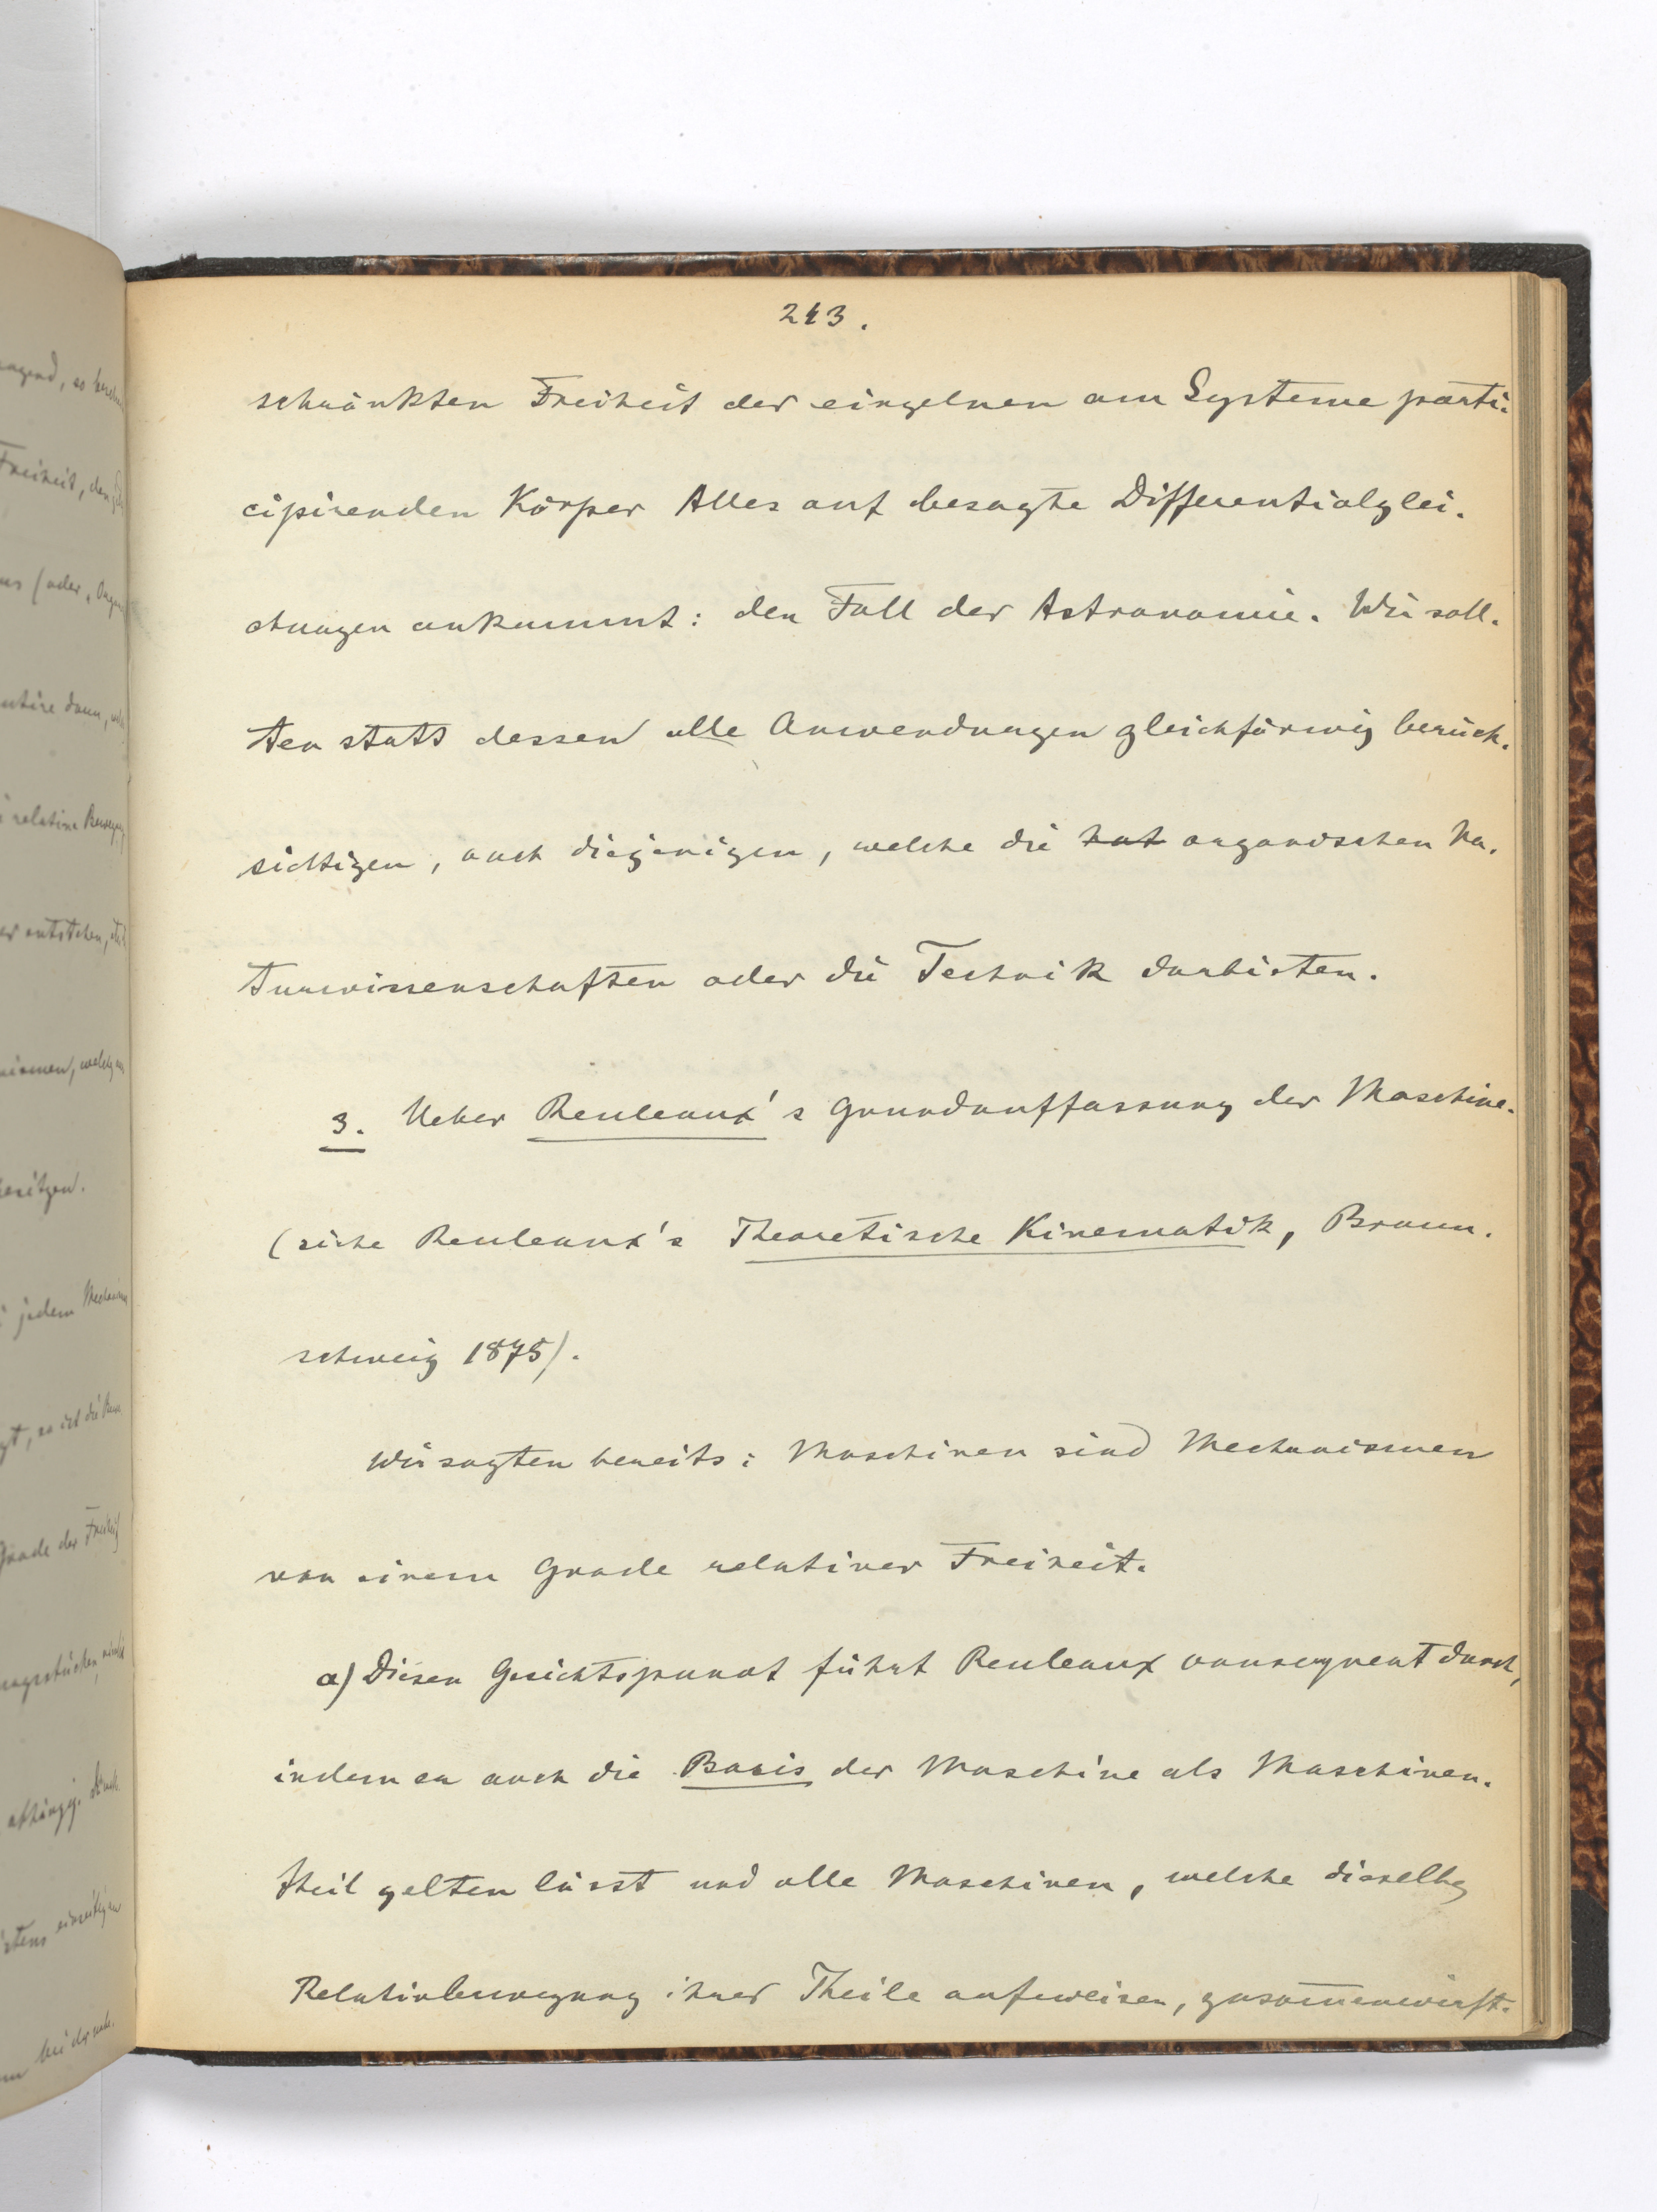 243.
schränkten Freiheit der einzelnen am Systeme parti-
cipirenden Körper Alles auf besagte Differentialglei-
chungen ankommt: den Fall der Astronomie. Wir soll-
ten statt dessen alle Anwendungen gleichförmig berück-
sichtigen, auch diejenigen, welche die hat organischen Na-
turwissenschaften oder die Technik darbieten.
3. Ueber Reuleaux's Grundauffassung der Maschine.
(siehe Reuleaux's Theoretische Kinematik, Braun-
schweig 1875).
Wir sagten bereits: Maschinen sind Mechanismen
von einem Grade relativer Freiheit.
a) Diesen Gesichtspunct führt Reuleaux consequent durch,
indem er auch die Basis der Maschine als Maschinen-
theil gelten lässt und alle Maschinen, welche dieselbe
Relativbewegung ihrer Theile aufweisen, zusam̅enwirft.